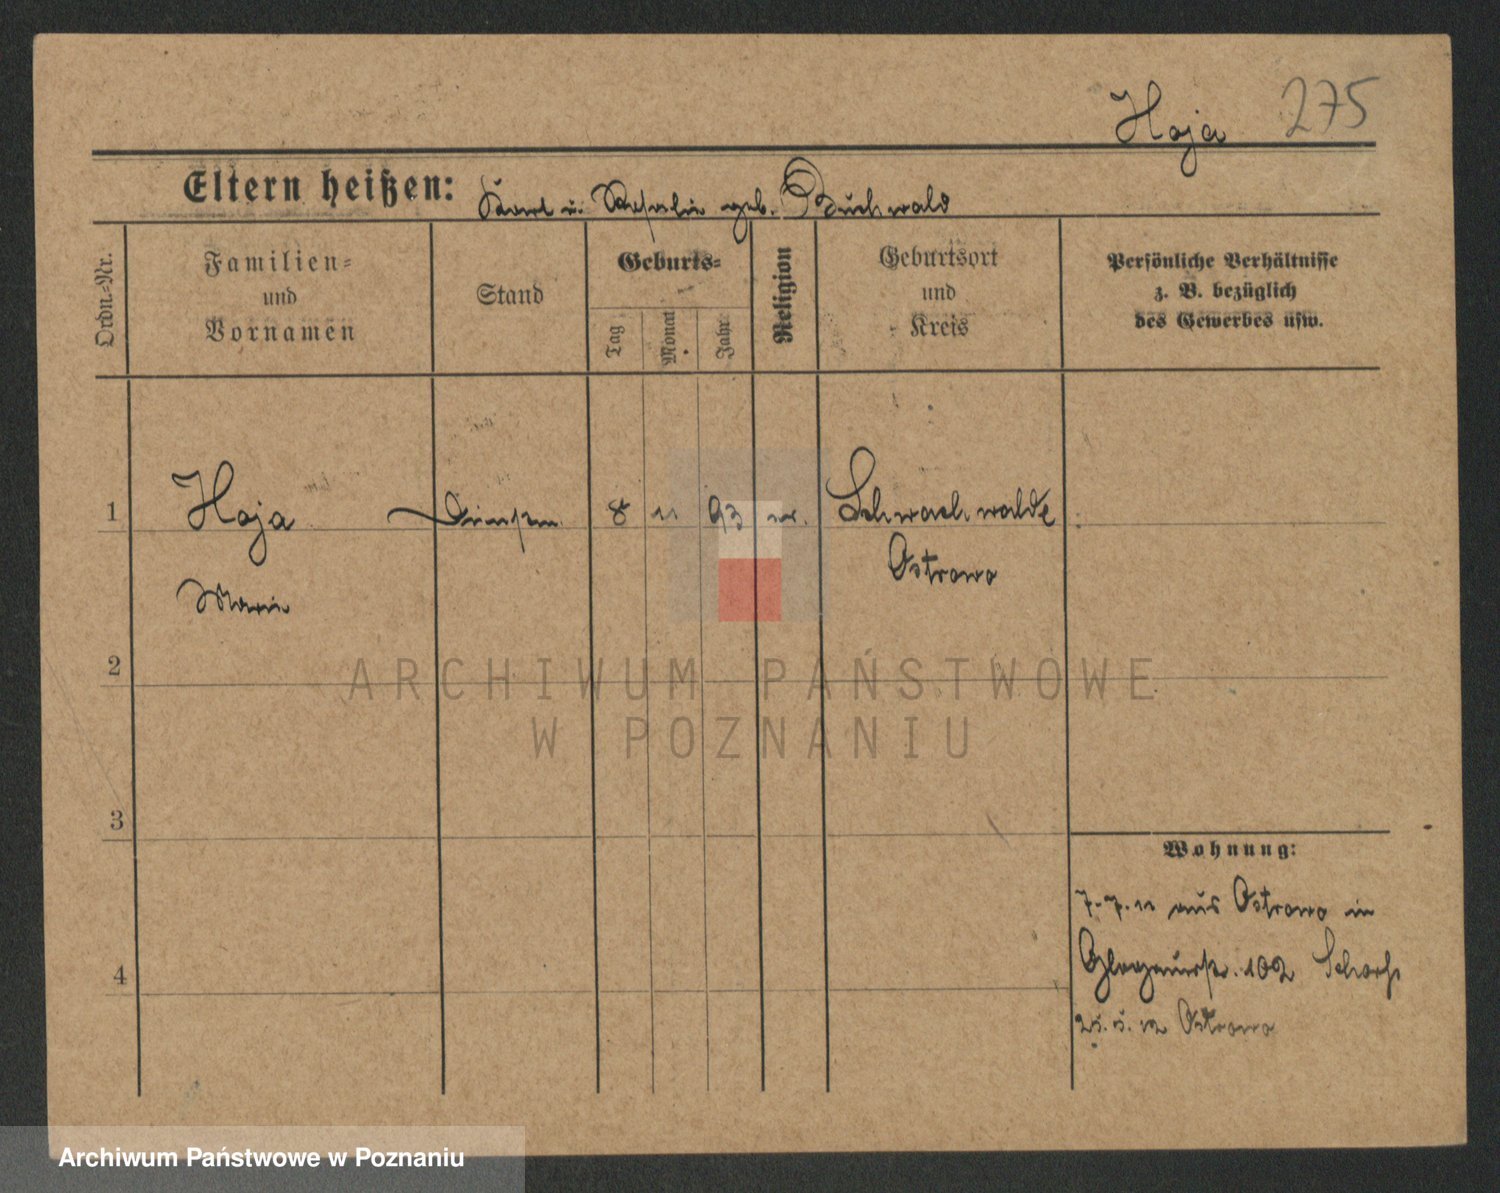 Hoja 275
Eltern heißen: Karl u. Rosalie geb. Buchwald
Ordn.-Nr.
Familien-
und
Vornamen
Stand
Geburts-
Tag
Monat
Jahr
Religion
Geburtsort
und
Kreis
Persönliche Verhältnisse
z. B. bezüglich
des Gewerbes usw.
1 Hoja 8 11 93 Schwachwalde
Ostrowo
Marie
2
3
4
Wohnung:
7.7.11 aus Ostrowo in
Glogauerstr. 102
25.5.12 Ostrowo
ARCHIWUM PAŃSTWOWE
W POZNANIU
Archiwum Państwowe w Poznaniu